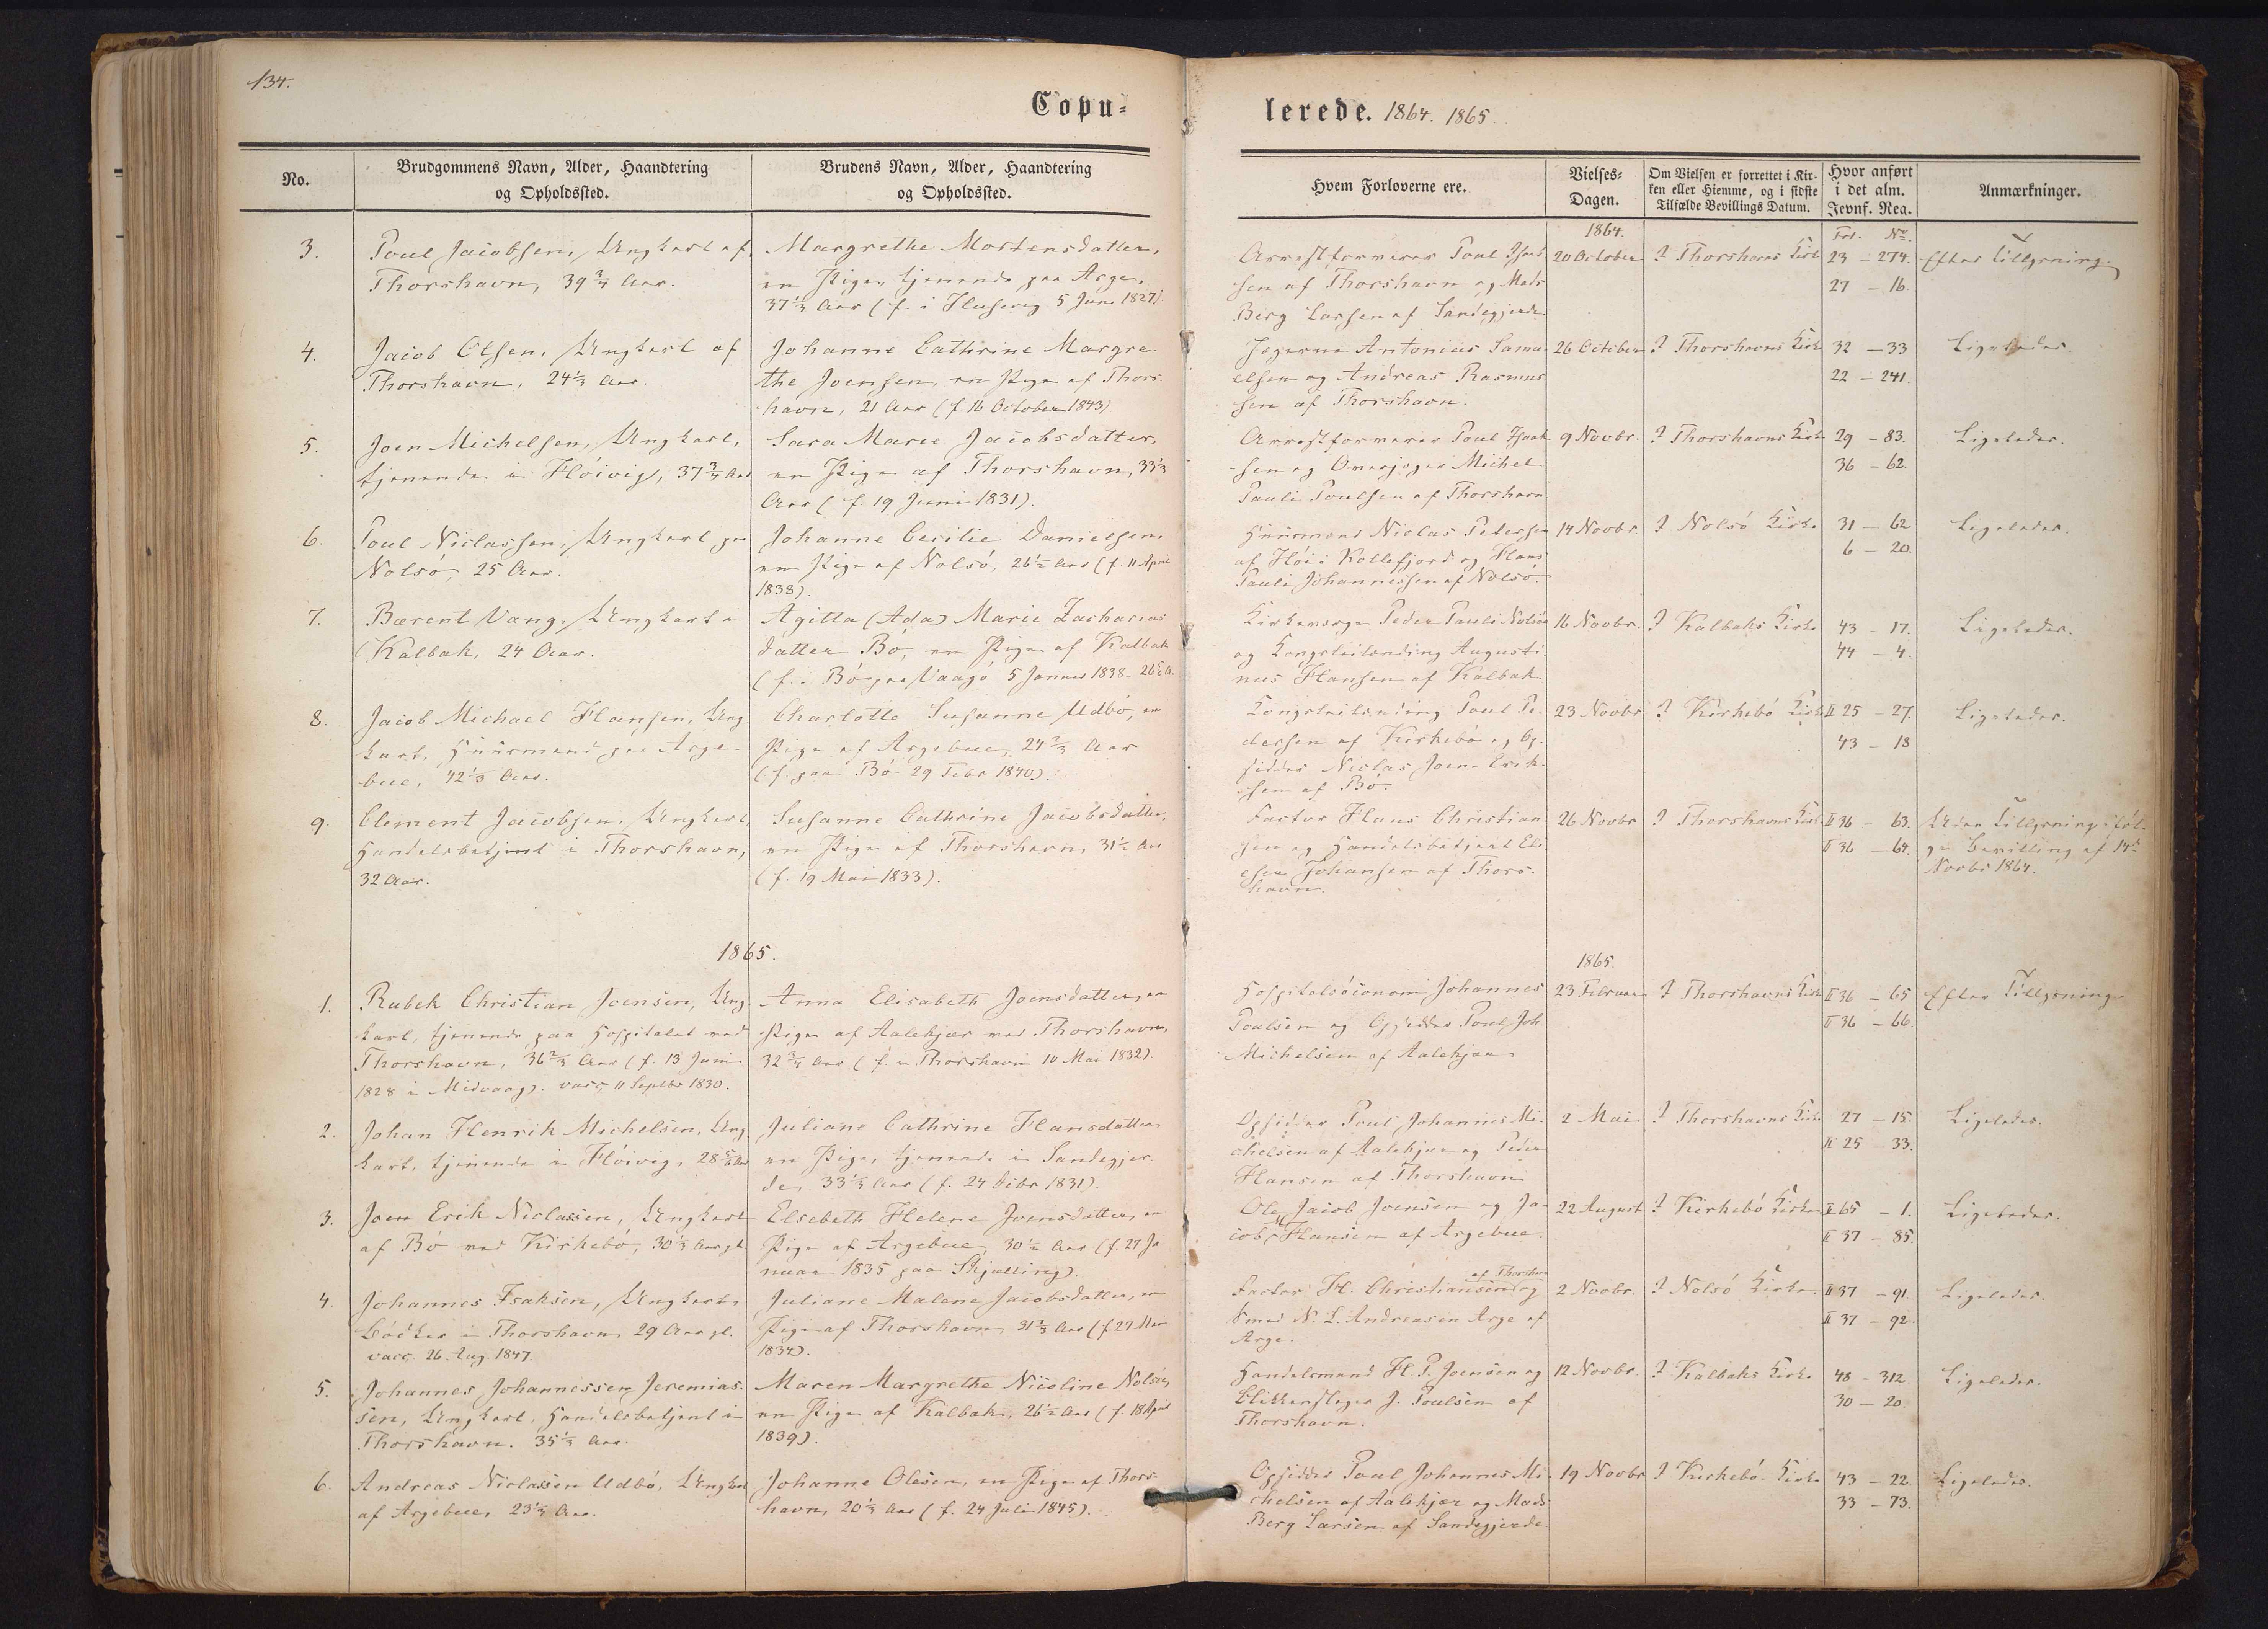 134.
Copu-
lerede. 1864. 1865
No.
Brudgommens Navn, Alder, Haandtering
og Opholdssted.
Brudens Navn, Alder, Haandtering
og Opholdssted.
Hvem Forloverne ere.
Vielses-
Dagen.
Om Vielsen er forrettet i Kir-
ken eller Hiemme, og i sidste
Tilfælde Bevillings Datum.
Hvor anført
i det alm.
Jevnf. Reg.
Anmærkninger.
1864.
Fol. No.
3.
Poul Jacobsen, Ungkarl af
Thorshavn, 39 3/4 Aar.
Margrethe Mortensdatter,
en Pige, tjenende paa Arge,
37 1/3 Aar (f. i Husevig 5 Juni 1827).
Arrestforvarer Poul Isak-
sen af Thorshavn og Mads
Berg Larsen af Sandegjerde
20 October
I Thorshavns Kirke
23 - 274.
27 - 16.
Efter Tillysning.
4.
Jacob Olsen, Ungkarl af
Thorshavn, 24 1/3 Aar.
Johanne Cathrine Margre-
the Joensen, en Pige af Thors-
havn, 21 Aar (f. 16 October 1843)
Jægerne Antonius Samu-
elsen og Andreas Rasmus-
sen af Thorshavn.
26 October
I Thorshavns Kirke
32 - 33
22 - 241.
Ligeledes.
5.
Joen Michelsen, Ungkarl,
tjenende i Flöivig, 37 3/4 Aar
Sara Marie Jacobsdatter,
en Pige af Thorshavn, 33 1/3
Aar (f. 19 Juni 1831).
Arrestforvarer Poul Isak-
sen og Overjæger Michel
Pauli Poulsen af Thorshavn
9 Novbr.
I Thorshavns Kirke
29 - 83.
36 - 62.
Ligeledes.
6.
Poul Niclassen, Ungkarl paa
Nolsö, 25 Aar.
Johanne Cecilie Danielsen,
en Pige af Nolsö, 26 1/2 Aar (f. 11 April
1838).
Huusmand Niclas Petersen
af Höi i Kollefjord og Hans
Pauli Johannessen af Nolsö.
14 Novbr.
I Nolsö Kirke
31 - 62
6 - 20.
Ligeledes.
7.
Bærent Vang, Ungkarl i
Kalbak, 24 Aar.
Agitta (Ada) Marie Zacharias-
datter Bö, en Pige af Kalbak
(f. i Bö paa Vaagö 5 Januar 1838.
Kirkeværge Peder Pauli Nolsöe
og Kongsleilending Augusti-
nus Hansen af Kalbak
16 Novbr.
I Kalbaks Kirke
43 - 17.
44 - 4.
Ligeledes.
8.
Jacob Michael Hansen, Ung-
karl, Huusmand paa Arge-
bue, 42 1/3 Aar.
Charlotte Susanne Udbö, en
Pige af Argebue, 24 2/3 Aar
(f. paa Bö 29 Febr 1840).
Kongsleilending Poul Pe-
dersen af Kirkebö og Op-
sidder Niclas Joen-Erik-
sen af Bö.
23 Novbr
I Kirkebö Kirke
II 25 - 27.
43 - 18
Ligeledes.
9.
Clement Jacobsen, Ungkarl,
Handelsbetjent i Thorshavn,
32 Aar.
Susanne Cathrine Jacobsdatter,
en Pige af Thorshavn, 31 1/2 Aar
(f. 19 Mai 1833).
Factor Hans Christian-
sen og Handelsbetjent Eli-
esen Johansen af Thors-
havn.
26 Novbr
I Thorshavns Kirke
II 36 - 63.
II 36 - 64.
Uden Tillysning iföl-
ge Bevilling af 14de
Novbr 1864.
1865.
1865
1.
Rubek Christian Joensen, Ung-
karl, tjenende paa Hospitalet ved
Thorshavn, 36 2/3 Aar (f. 13 Juni
1828 i Midvaag). vacc. 11 Septbr 1830.
Anna Elisabeth Joensdatter, en
Pige af Aalekjær ved Thorshavn,
32 3/4 Aar (f. i Thorshavn 10 Mai 1832).
Hospitalsöconom Johannes
Poulsen og Opsidder Poul Joh.
Michelsen af Aalekjær
23 Februar
I Thorshavns Kirke
II 36 - 65
II 36 - 66.
Efter Tillysning
2.
Johan Henrik Michelsen, Ung-
karl, tjenende i Flöivig, 28 5/6 Aar
Juliane Cathrine Hansdatter
en Pige, tjenende i Sandegjer-
de, 33 1/3 Aar (f. 24 Debr 1831).
Opsidder Poul Johannes Mi-
chelsen af Aalekjær og Peder
Hansen af Thorshavn
2 Mai
I Thorshavns Kirke
27 - 15.
II 25 - 33.
Ligeledes.
3.
Joen Erik Niclassen, Ungkarl
af Bö ved Kirkebö, 30 1/3 Aar gl.
Elsebeth Helene Joensdatter, en
Pige af Argebue, 30 1/2 Aar (f. 27 Ja-
nuar 1835 paa Skjælling).
Ole Jacob Joensen og Ja-
cob M Hansen af Argebue.
22 August
I Kirkebö Kirke
II 65 - 1.
II 37 - 85.
Ligeledes.
4.
Johannes Isaksen, Ungkarl,
Bödker i Thorshavn, 29 Aar gl.
vacc. 26 Aug. 1847.
Juliane Malene Jacobsdatter, en
Pige af Thorshavn, 31 1/3 Aar (f. 27
1834).
Factor H. Christiansen af Thorshavn og
Smed N. L. Andreasen Arge af
Arge.
2 Novbr.
I Nolsö Kirke
II 37 - 91.
II 37 - 92
Ligeledes.
5.
Johannes Johannessen Jeremias-
sen, Ungkarl, Handelsbetjent i
Thorshavn. 35 1/3 Aar
Maren Margrethe Nicoline Nolsöe,
en Pige af Kalbak, 26 1/2 Aar (f. 18 April
1839).
Handelsmand H. P. Joensen og
Blikkenslager J. Poulsen af
Thorshavn.
12 Novbr.
I Kalbaks Kirke
48 - 312
30 - 20.
Ligeledes.
6.
Andreas Niclassen Udbö, Ungkarl
af Argebue, 23 1/3 Aar.
Johanne Olesen, en Pige af Thors-
havn, 20 1/3 Aar (f. 24 Juli 1845).
Opsidder Poul Johannes Mi-
chelsen af Aalekjær og Mads
Berg Larsen af Sandegjerde.
19 Novbr
I Kirkebö Kirke
43 - 22.
33 - 73.
Ligeledes.